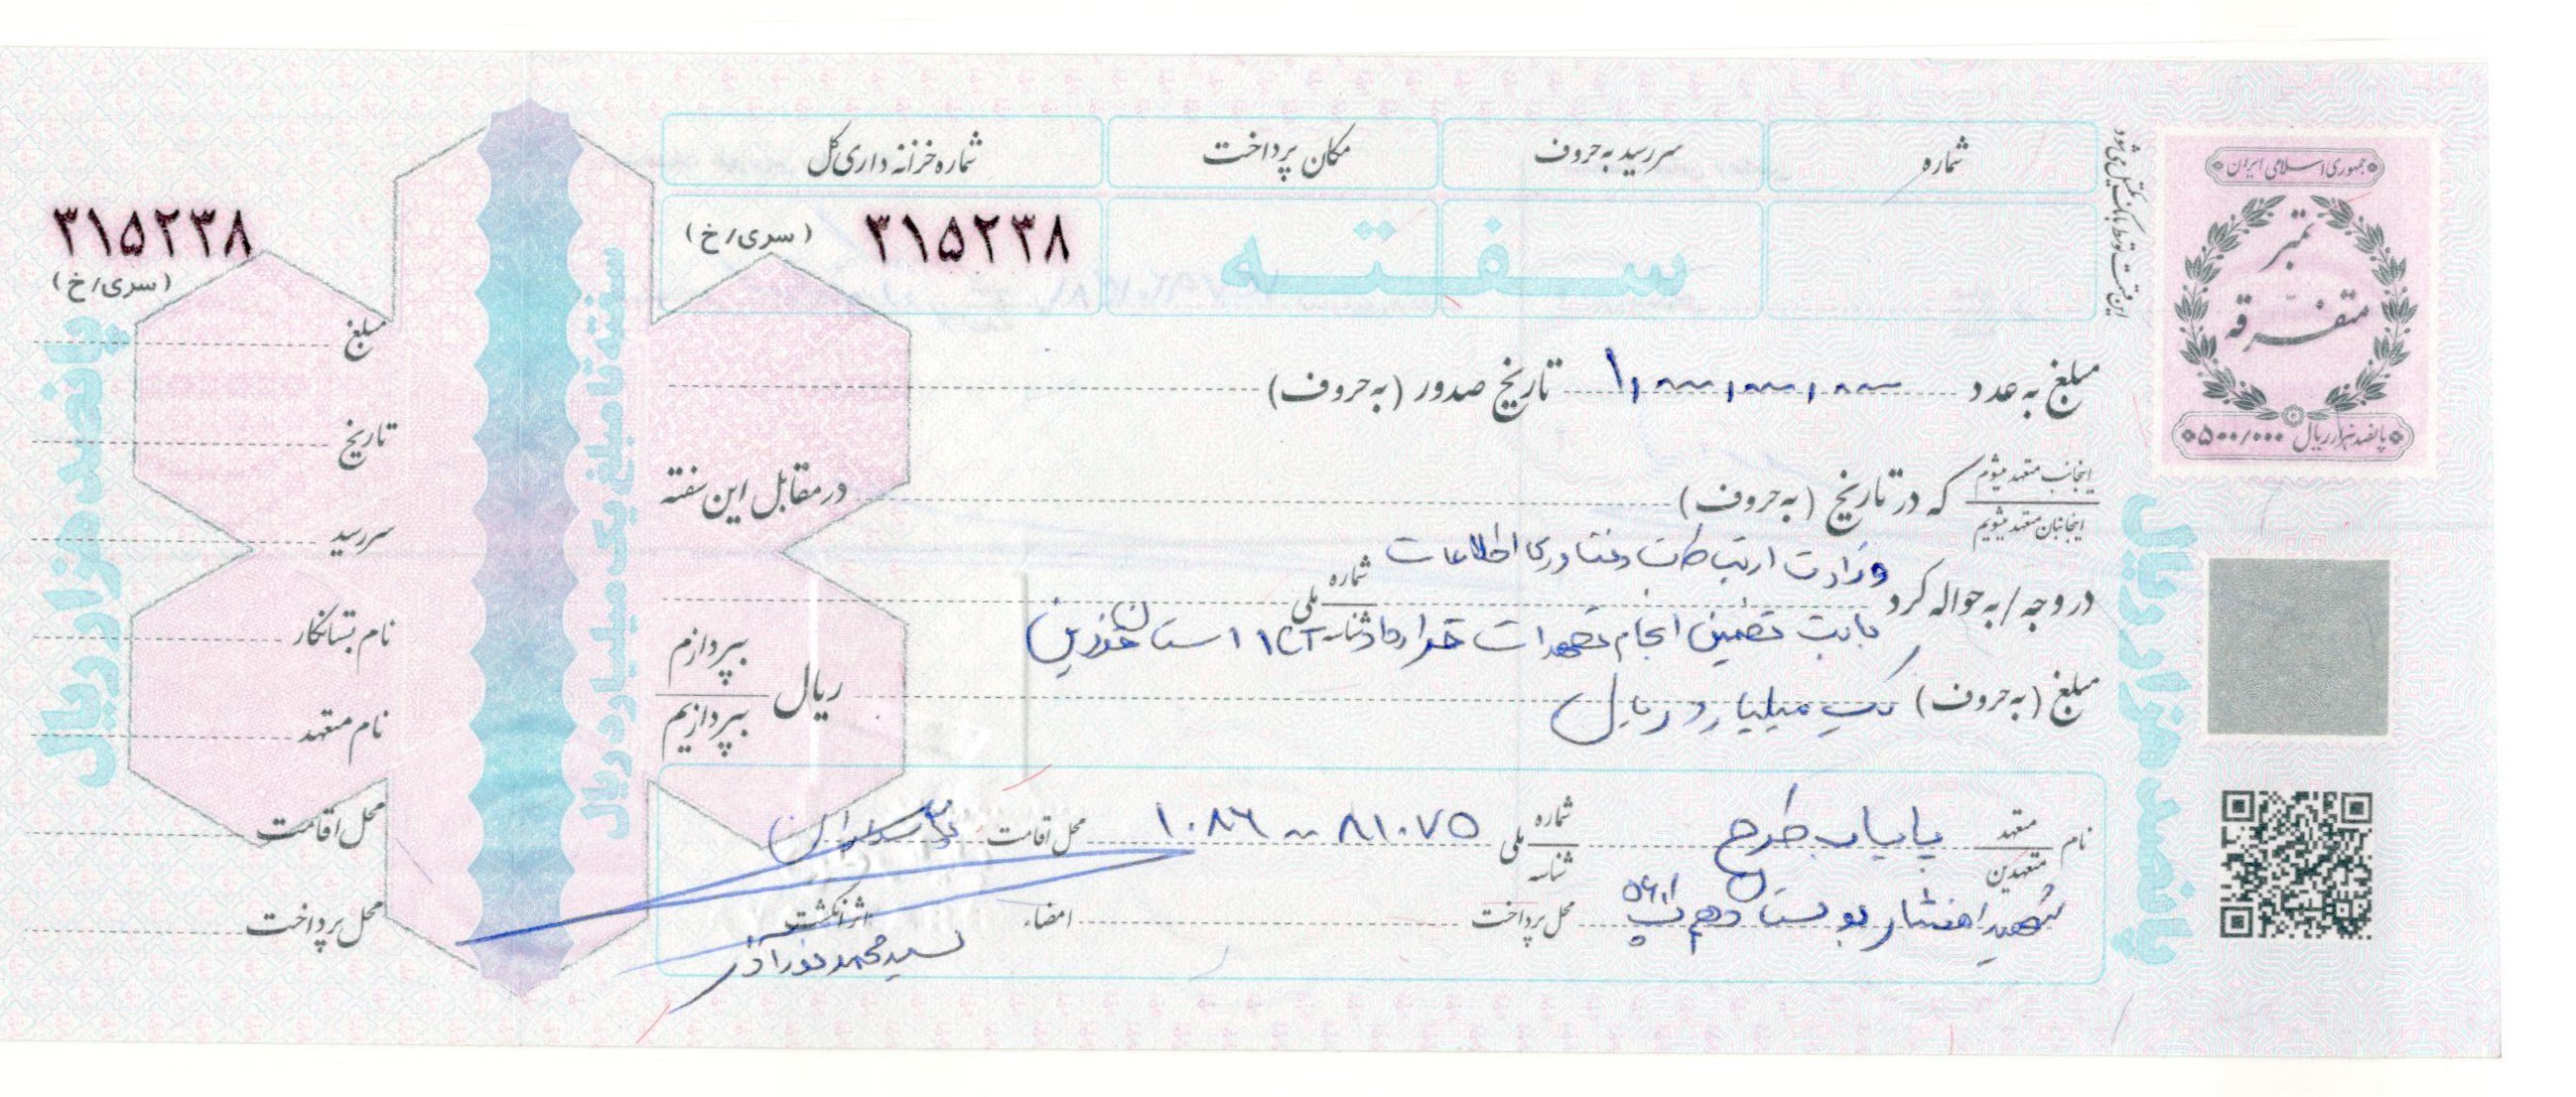 جمهوری اسلامی ایران
تمبر
متفرقه
پانصد هزار ریال ۵۰۰/۰۰۰
این قسمت توسط بانک تکمیل می شود
شماره
سررسید به حروف
مکان پرداخت
شماره خزانه داری کل
سفته
۳۱۵۲۳۸ (سری/خ)
مبلغ به عدد ۱,۰۰۰,۰۰۰,۰۰۰ تاریخ صدور (به حروف)
اینجانب متعهد میشوم
اینجانبان متعهد میشویم
که در تاریخ (به حروف) در مقابل این سفته
در وجه/به حواله کرد وزارت ارتباطات و فناوری اطلاعات شماره ملی شناسه
بابت تضمین انجام تعهدات قرارداد ICT استان
مبلغ (به حروف) یک میلیارد ریال ریال بپردازم بپردازیم
نام متعهد متعهدین پایاب طرح شماره ملی شناسه ۱۰۸۶۰۰۸۱۰۷۵ محل اقامت پاسداران
شهید افشار بوستان دهم پ محل پرداخت امضاء اثر انگشت
سید محمد
پانصد هزار ریال
سفته تا مبلغ یک میلیارد ریال
۳۱۵۲۳۸
(سری/خ)
مبلغ
تاریخ
سررسید
نام بستانکار
نام متعهد
محل اقامت
محل پرداخت
پانصد هزار ریال